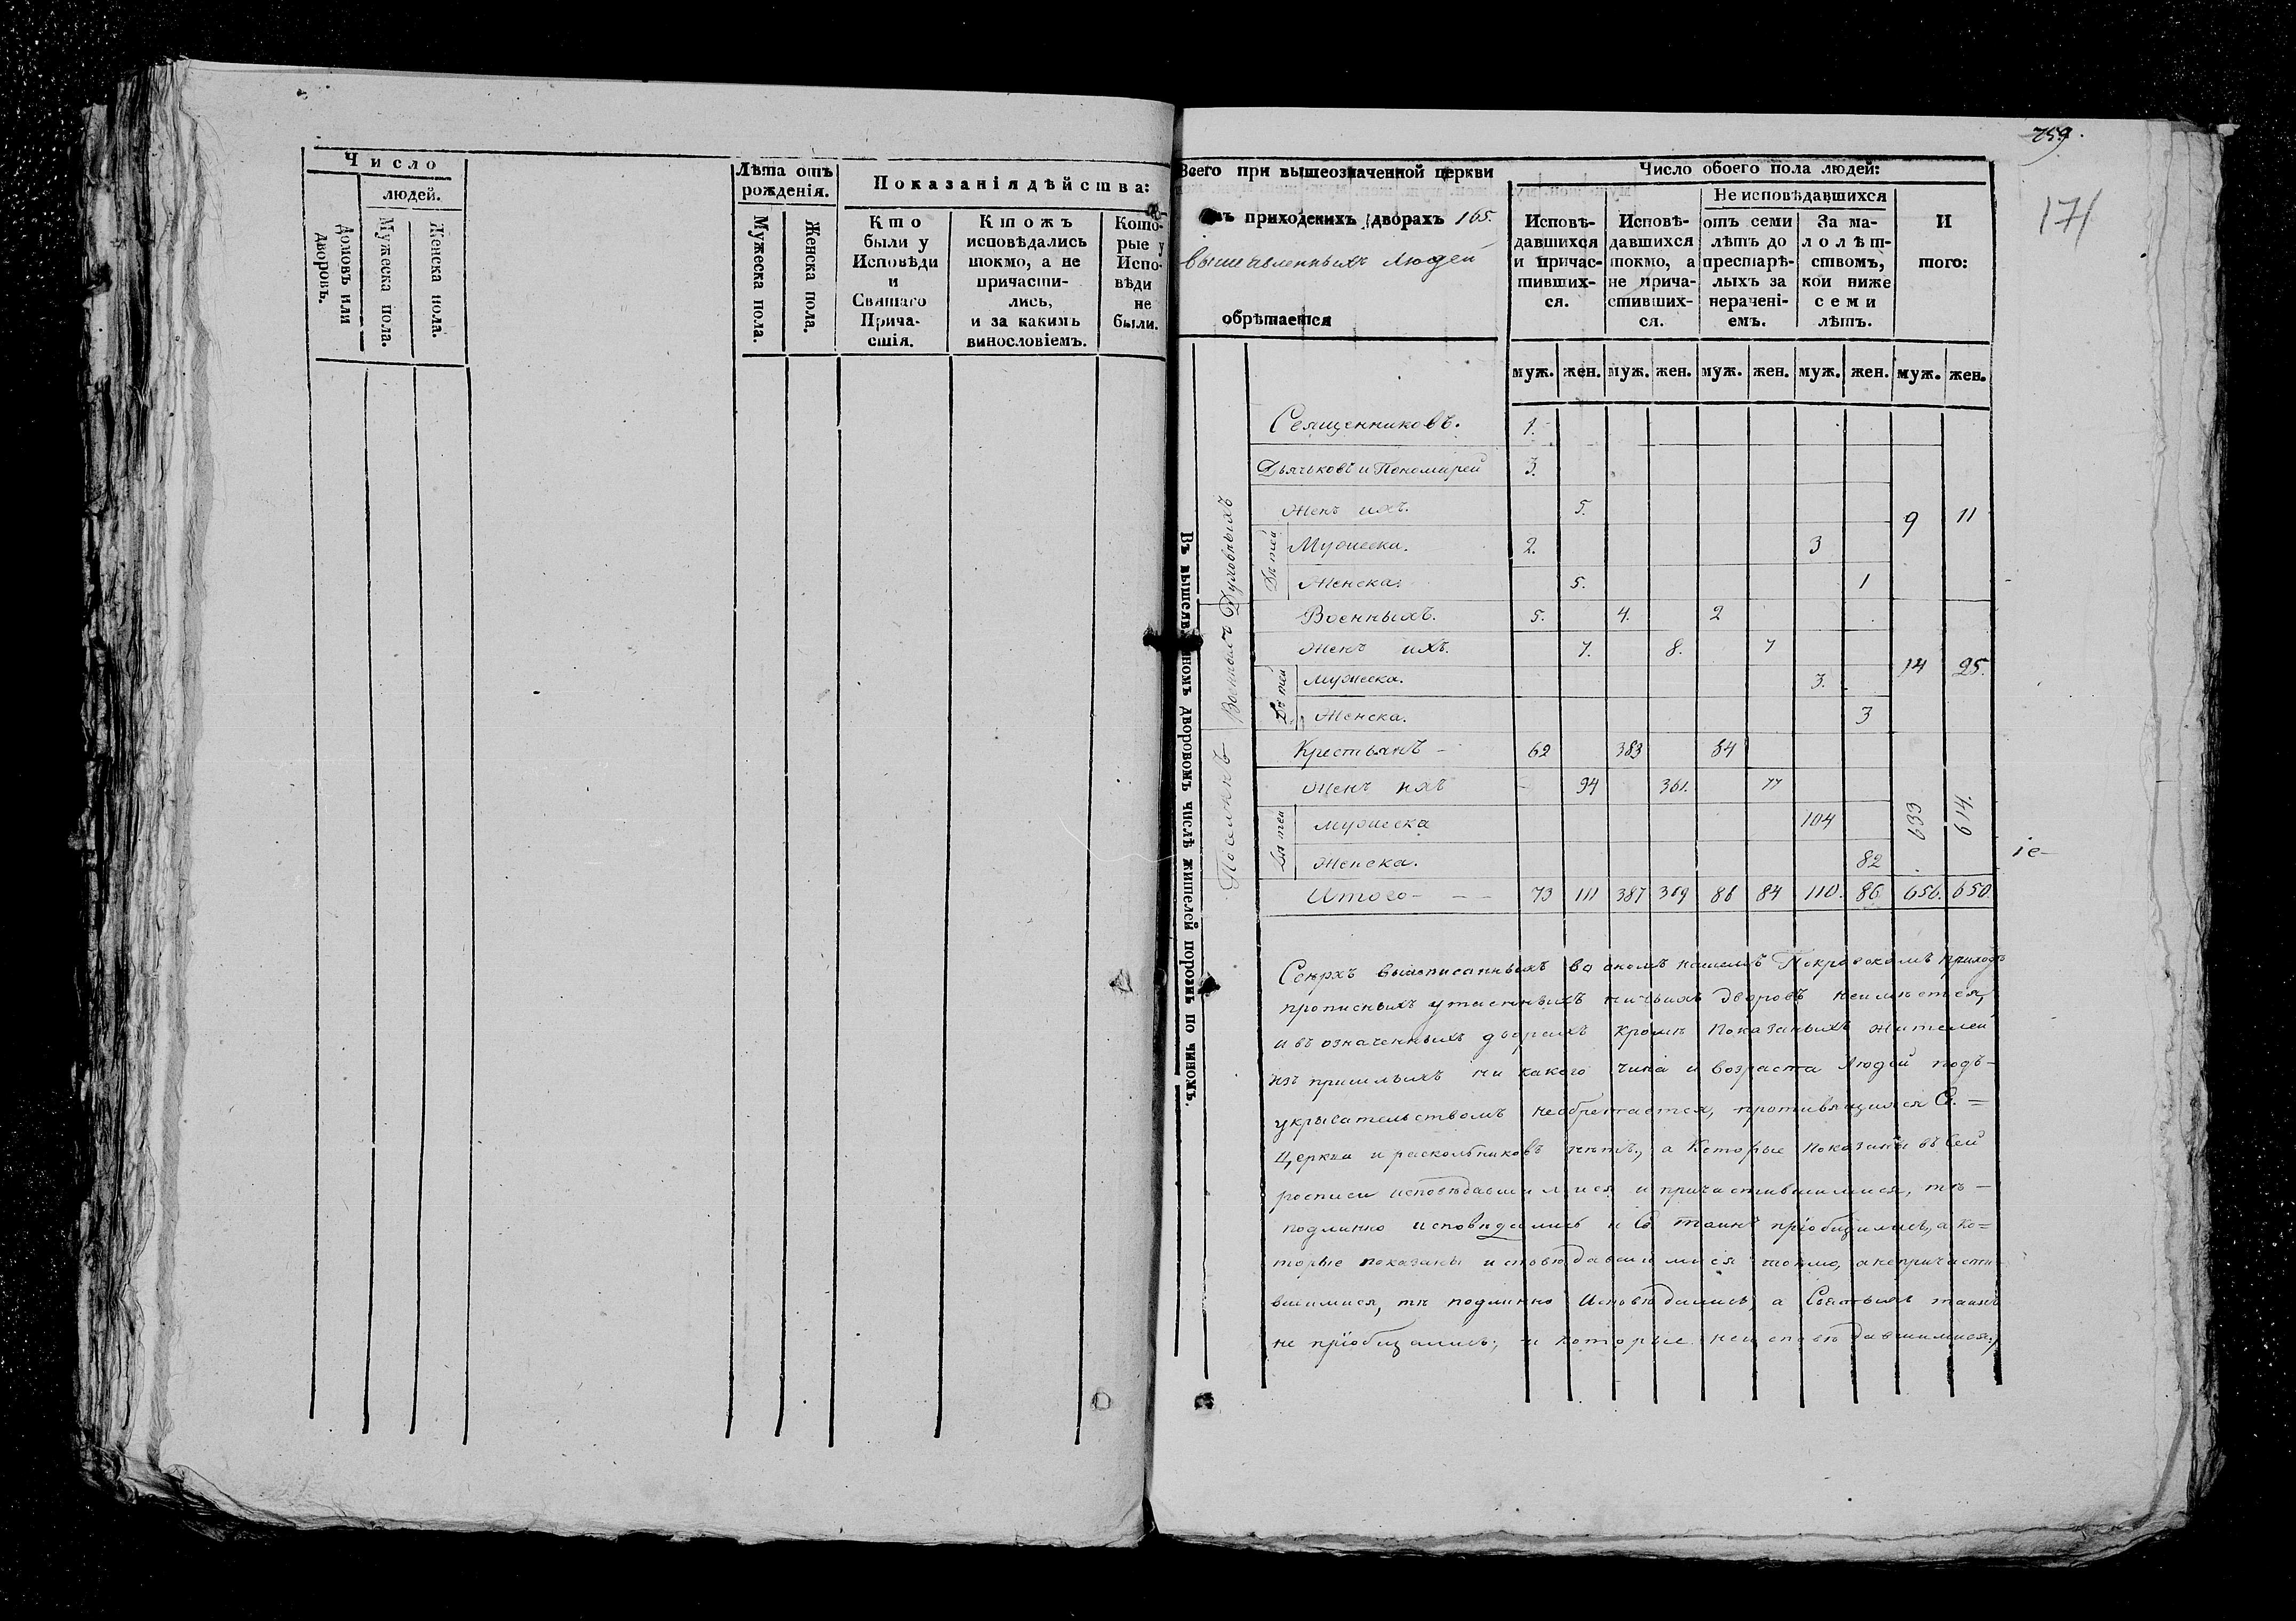 Число
людей.
домовъ или дворовъ.
Мужеска пола.
Женска пола.
Лѣта отъ рожденія.
Мужеска пола.
Женска пола.
Показанія дѣйства:
Кто
были у
Исповѣди
и
Святаго
Прича-
стія.
Ктожъ
исповѣдались
токмо, а не
причасти-
лись,
и за какимъ
винословіемъ.
Кото-
рые у
Испо-
вѣди
не
были.
759.
171
Всего при вышеозначенной церкви
въ приходскихъ дворахъ 165.
вышеявленныхъ людей
обрѣтается
Число обоего пола людей:
Исповѣ-
давшихся
и причас-
тивших-
ся.
Исповѣ-
давшихся
токмо, а
не прича-
стивших-
ся.
Не исповѣдавшихся
отъ семи
лѣтъ до
престарѣ-
лыхъ за
нерачені-
емъ.
За ма-
лолѣт-
ствомъ,
кои ниже
семи
лѣтъ.
И
того:
муж. жен. муж. жен. муж. жен. муж. жен. муж. жен.
Въ вышеявленномъ дворовомъ числѣ жителей порознь по чиномъ.
Духовныхъ
Священниковъ. 1.
Дьячьковъ и Пономарей 3.
Женъ ихъ. 5. 9 11
Дѣтей
Мужеска. 2. 3
Женска. 5. 1
Военныхъ
Военныхъ. 5. 4. 2
Женъ ихъ. 7. 8. 7
14 25.
Дѣтей
Мужеска. 3.
Женска. 3
Поселянъ
Крестьянъ - 62 383 84
Женъ ихъ 94 361. 77
633 614.
Дѣтей
Мужеска 104
Женска. 82
Итого - - - 73 111 387 369 86 84 110. 86 656. 650.
іе-
Сверхъ вышеписанныхъ во ономъ нашемъ Покровскомъ приходѣ
прописныхъ утаенныхъ ничьихъ дворовъ неимѣется,
и въ означенныхъ дворахъ кромѣ показаныхъ жителей
изъ пришлыхъ ни какого чина и возраста людей подъ-
укрывательствомъ необретается, противящихся С. =
Церкви и раскольниковъ нѣтъ, а Которые показаны въ сей
росписи исповѣдавшимися и причастившимися, тѣ -
подлинно исповѣдались и Св таинъ пріобщились, а ко=
торые показаны исповѣдавшимися токмо, анепричасти
вшимися, тѣ подлинно Исповѣдались, а Святыхъ таинъ
не пріобщались; и которые неисповѣдавшимися,